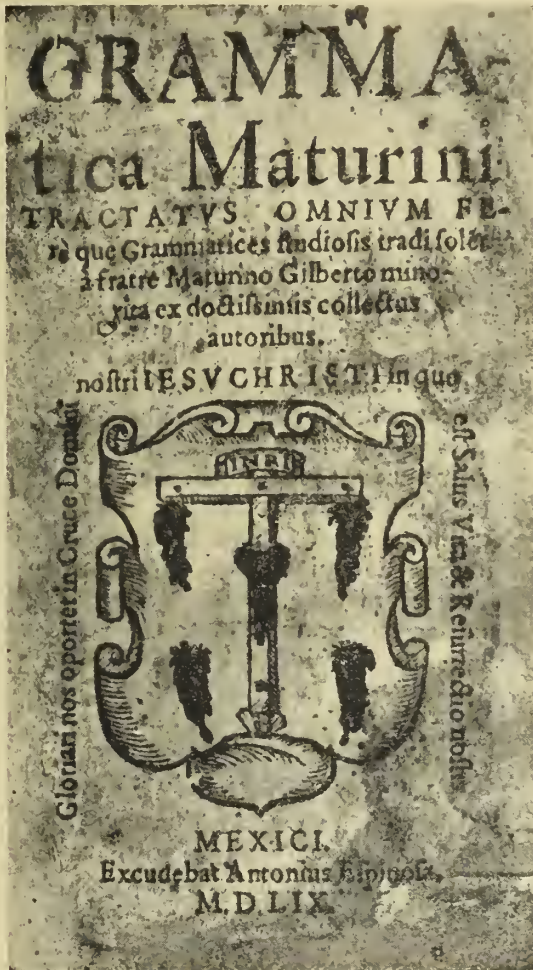 GRAMMA-
tica Maturini
TRACTATVS OMNIVM FE-
rè que Grammatices studiosis tradi solẽt
à fratre Maturino Gilberto mino-
rita ex doctissimis collectus
autoribus.
Gloriari nos oportet in Cruce Domini
nostri IESV CHRISTI in quo
est Salus Vita & Resurrectio nostra
INRI
MEXICI.
Excudebat Antonius Espinosa.
M.D.LIX.